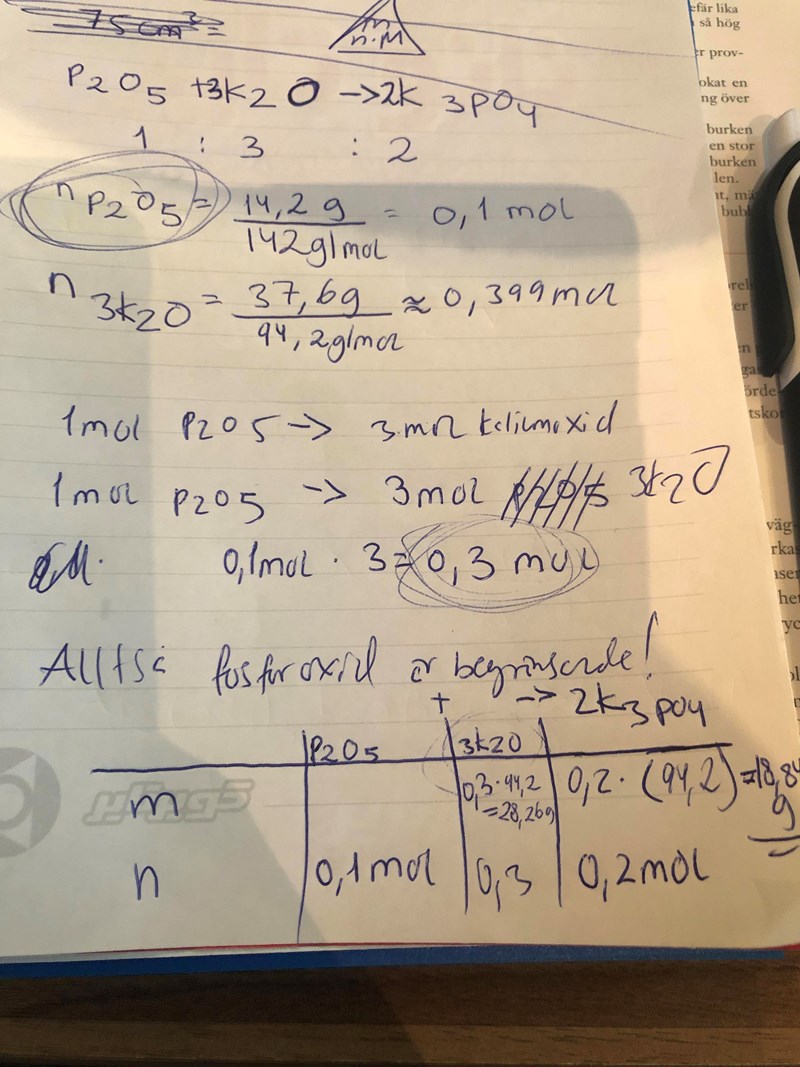 75 cm³ =
m
n·M
P2O5 + 3K2O → 2K3PO4
1 : 3 : 2
nP2O5 = 14,2 g / 142 g/mol = 0,1 mol
n3K2O = 37,6g / 94,2g/mol ≈ 0,399 mol
1 mol P2O5 → 3 mol kaliumoxid
1 mol P2O5 → 3 mol 3K2O
0,1mol · 3 = 0,3 mol
Alltså fosforoxid är begränsande!
+ → 2K3PO4
P2O5 3K2O
m 0,3·94,2 =28,26g 0,2·(94,2) =18,84 g
n 0,1 mol 0,3 0,2 mol
efär lika
så hög
r prov-
okat en
ng över
burken
en stor
burken
len.